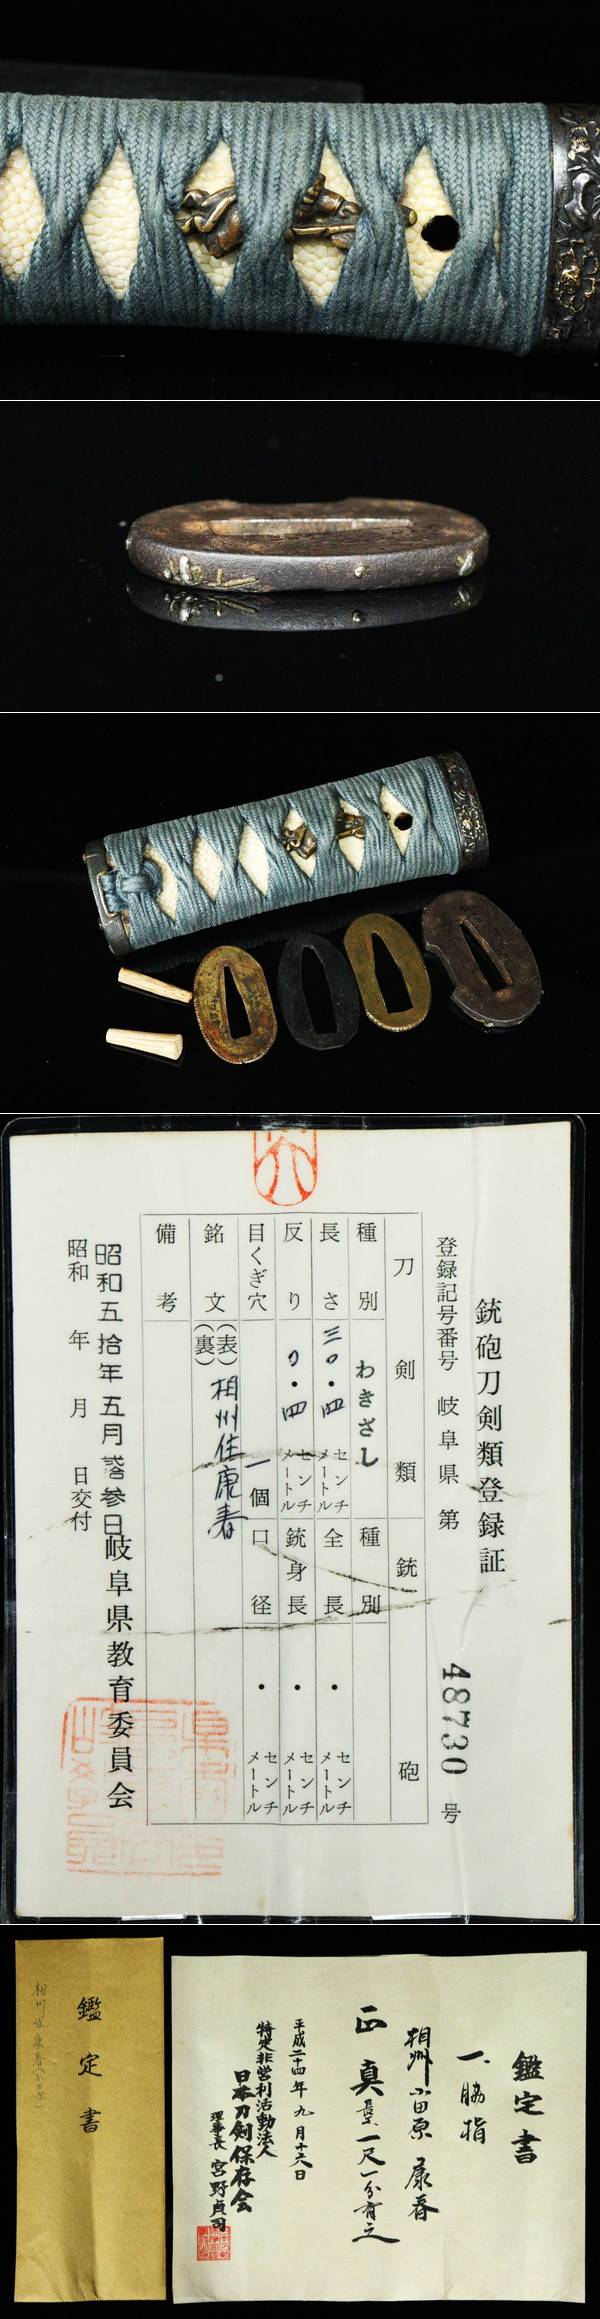 銃砲刀剣類登録証
登録記号番号 岐阜県 第 48730 号
刀剣類 銃砲
種別 わきざし 種別
長さ 三〇・四 センチメートル 全長 ・ センチメートル
反り 〇・四 センチメートル 銃身長 ・ センチメートル
目くぎ穴 一個 口径 ・ センチメートル
銘文 (表) 相州住康春
(裏)
備考
昭和五拾年五月 参日
昭和 年 月 日交付
岐阜県教育委員会
鑑定書
鑑定書
一、脇指
相州小田原 康春
正真 長一尺一分有之
平成二十四年九月十六日
特定非営利活動法人
日本刀剣保存会
理事長 宮野貞司